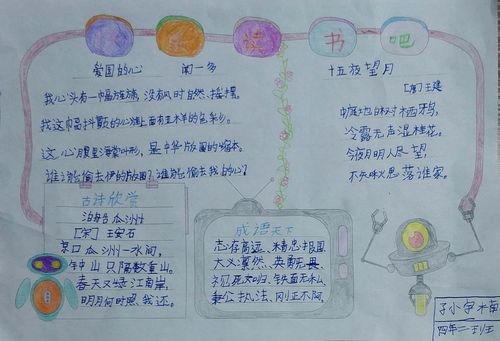 读 书 吧
爱国的心 闻一多
我心头有一幅旌旆,没有风时自然摇摆。
我这幅抖颤的心旌上面有五样的色彩。
这心腹里海棠叶形,是中华版图的缩本。
谁能偷去伊的版图?谁能偷去我的心?
十五夜望月
[唐]王建
中庭地白树栖鸦,
冷露无声湿桂花。
今夜月明人尽望,
不知秋思落谁家。
古诗欣赏
泊船瓜洲
[宋]王安石
京口瓜洲一水间,
钟山只隔数重山。
春天又绿江南岸,
明月何时照我还。
成语天下
志存高远、精忠报国
大义凛然、英勇无畏
视死如归、铁面无私
秉公执法、刚正不阿
四年二班